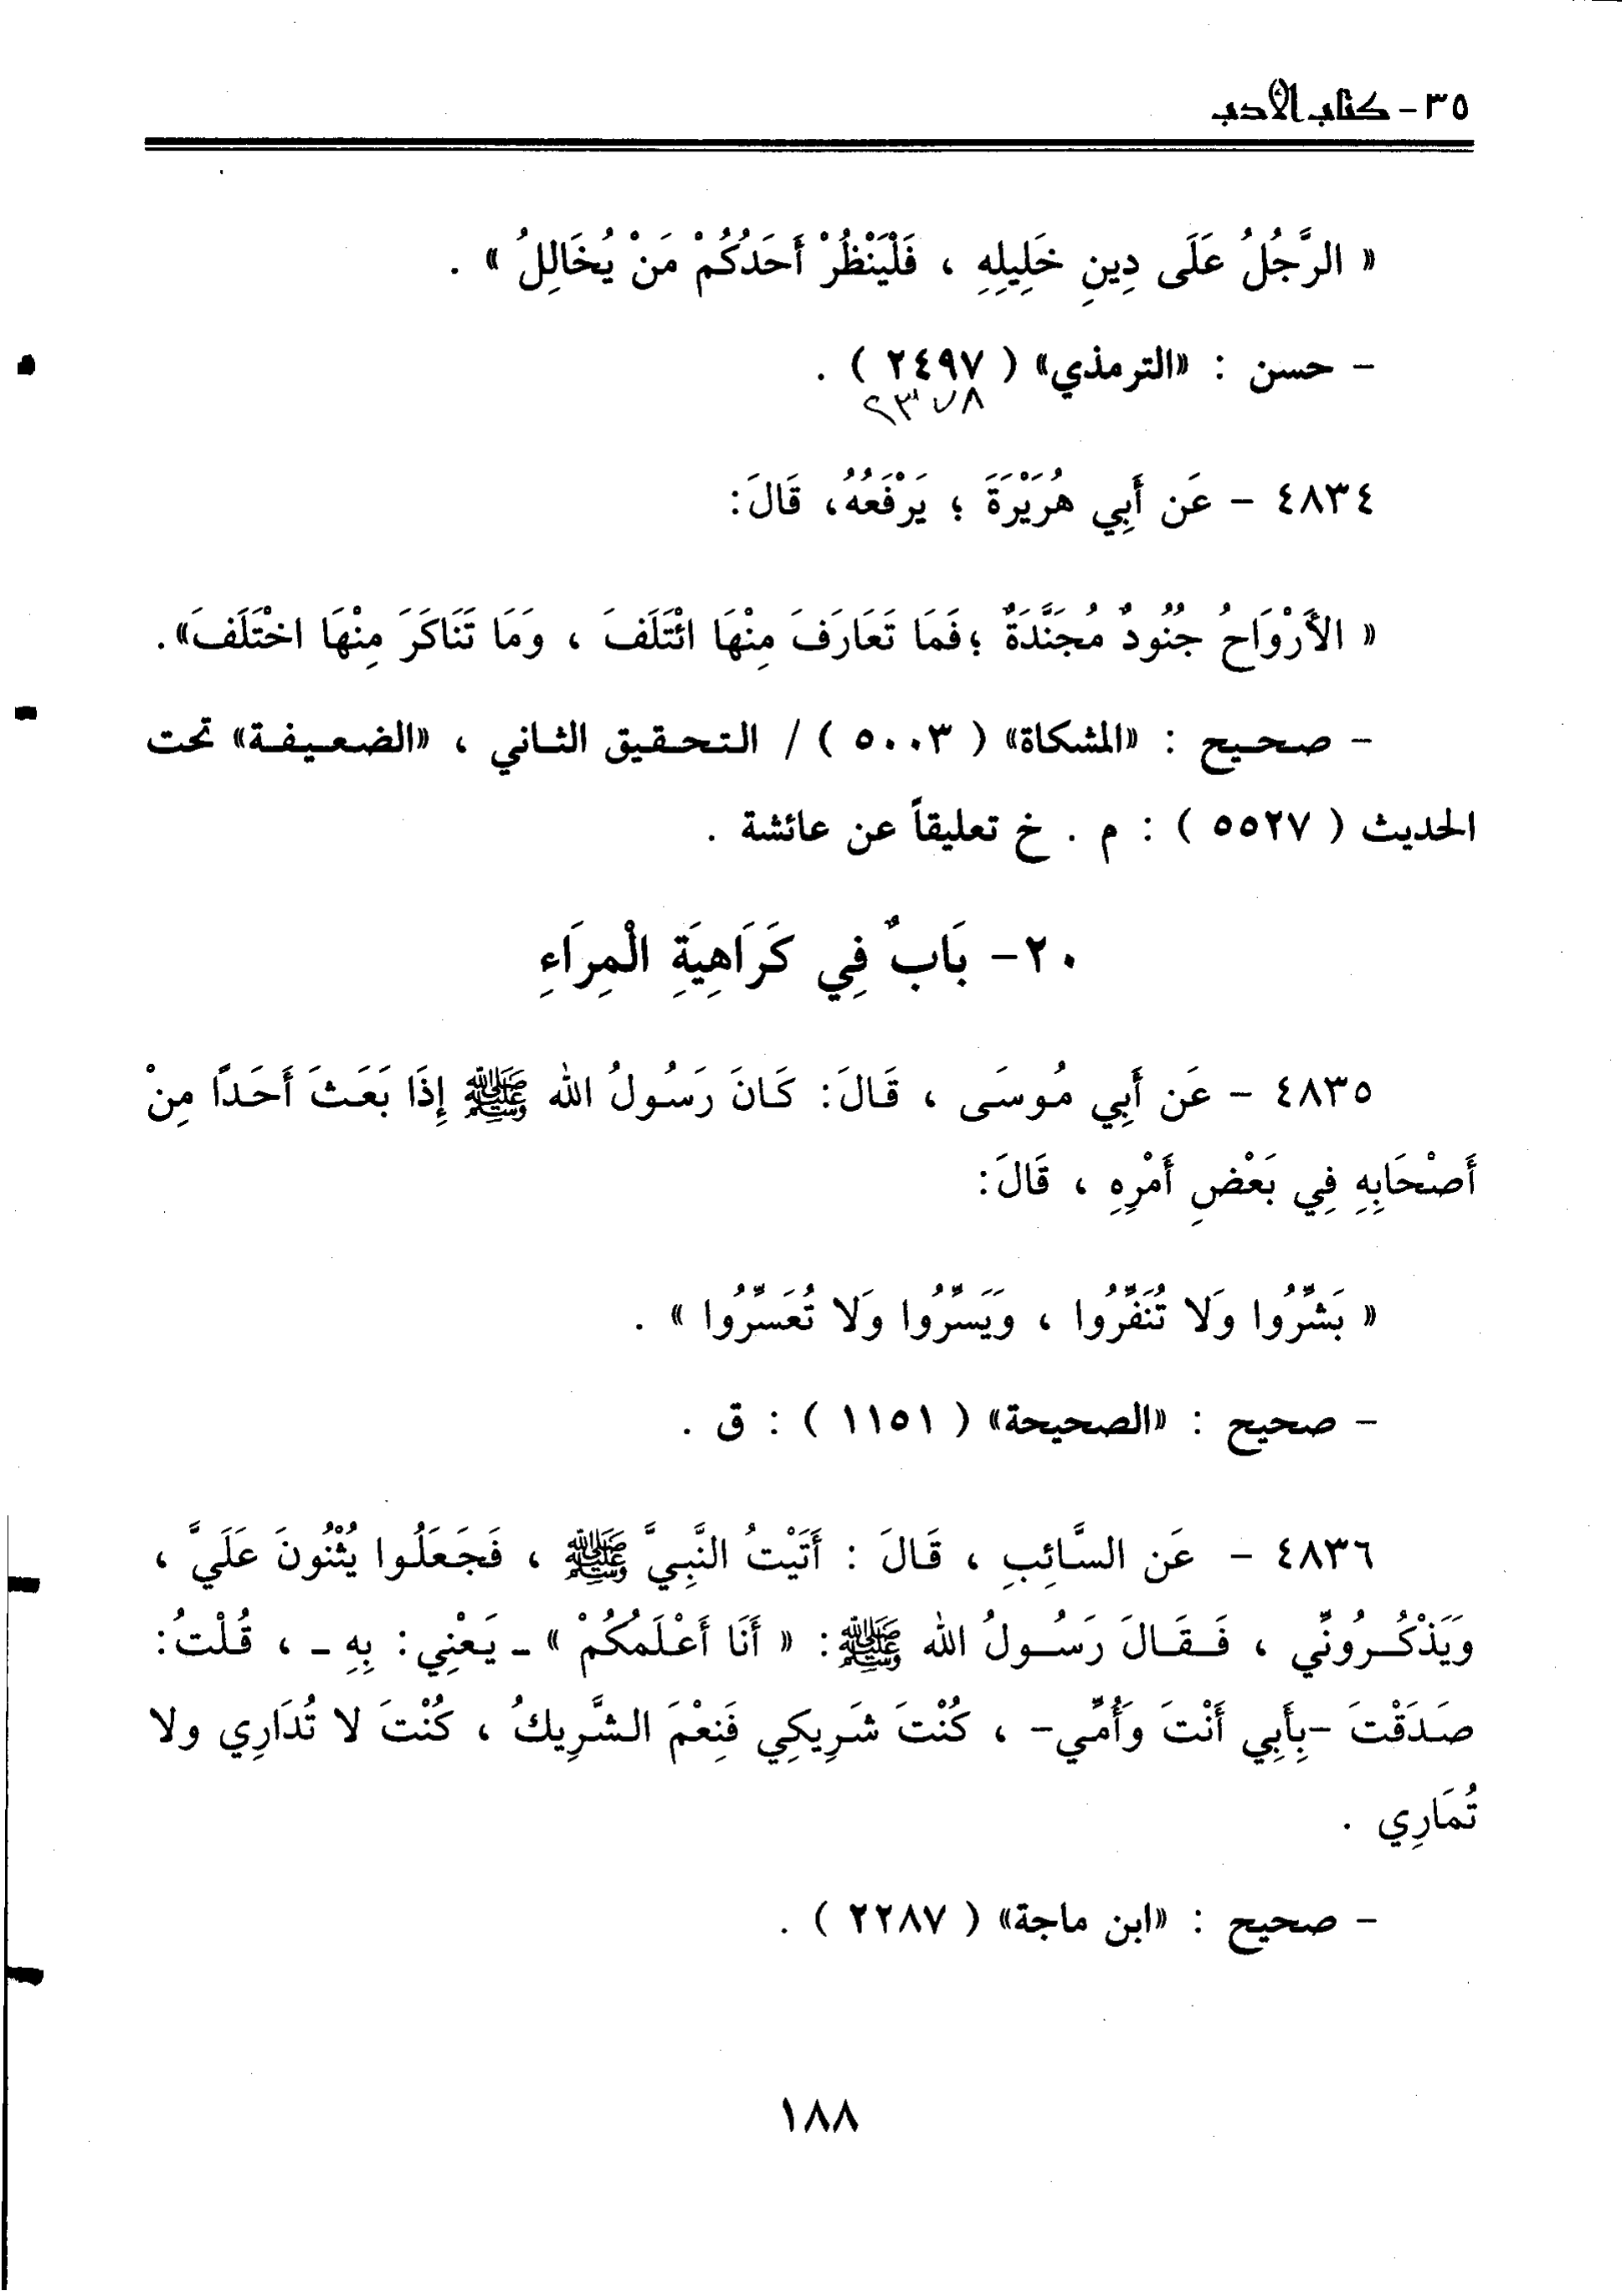 ٣٥ - كتاب الأدب
« الرَّجُلُ عَلَى دِينِ خَلِيلِهِ ، فَلْيَنْظُرْ أَحَدُكُمْ مَنْ يُخَالِلُ » .
- حسن : «الترمذي» ( ٢٤٩٧ ) .
٢٣٧٨
٤٨٣٤ - عَن أَبِي هُرَيْرَةَ ؛ يَرْفَعُهُ، قَالَ:
« الأَرْوَاحُ جُنُودٌ مُجَنَّدَةٌ ؛فَمَا تَعَارَفَ مِنْهَا ائْتَلَفَ ، وَمَا تَنَاكَرَ مِنْهَا اخْتَلَفَ».
- صحيح : «المشكاة» ( ٥٠٠٣ ) / التحقيق الثاني ، «الضعيفة» تحت
الحديث ( ٥٥٢٧ ) : م . خ تعليقاً عن عائشة .
٢٠- بَابٌ فِي كَرَاهِيَةِ الْمِرَاءِ
٤٨٣٥ - عَن أَبِي مُوسَى ، قَالَ: كَانَ رَسُولُ الله ﷺ إِذَا بَعَثَ أَحَداً مِنْ
أَصْحَابِهِ فِي بَعْضِ أَمْرِهِ ، قَالَ:
« بَشِّرُوا وَلا تُنَفِّرُوا ، وَيَسِّرُوا وَلا تُعَسِّرُوا » .
- صحيح : «الصحيحة» ( ١١٥١ ) : ق .
٤٨٣٦ - عَن السَّائِبِ ، قَالَ : أَتَيْتُ النَّبِيَّ ﷺ ، فَجَعَلُوا يُثْنُونَ عَلَيَّ ،
وَيَذْكُرُونِّي ، فَقَالَ رَسُولُ الله ﷺ: « أَنَا أَعْلَمُكُمْ » ـ يَعْنِي: بِهِ ـ ، قُلْتُ:
صَدَقْتَ -بِأَبِي أَنْتَ وَأُمِّي- ، كُنْتَ شَرِيكِي فَنِعْمَ الشَّرِيكُ ، كُنْتَ لا تُدَارِي ولا
تُمَارِي .
- صحيح : «ابن ماجة» ( ٢٢٨٧ ) .
١٨٨